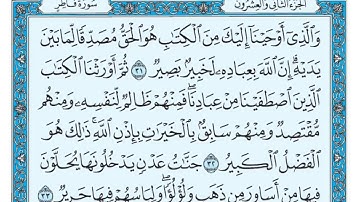 الجزء الثاني والعشرون سورة فاطر
وَالَّذِي أَوْحَيْنَا إِلَيْكَ مِنَ الْكِتَٰبِ هُوَ الْحَقُّ مُصَدِّقًا لِّمَا بَيْنَ
يَدَيْهِ إِنَّ اللَّهَ بِعِبَادِهِ لَخَبِيرٌ بَصِيرٌ ٣١ ثُمَّ أَوْرَثْنَا الْكِتَٰبَ
الَّذِينَ اصْطَفَيْنَا مِنْ عِبَادِنَا فَمِنْهُمْ ظَالِمٌ لِّنَفْسِهِ وَمِنْهُم
مُّقْتَصِدٌ وَمِنْهُمْ سَابِقٌ بِالْخَيْرَٰتِ بِإِذْنِ اللَّهِ ذَٰلِكَ هُوَ
الْفَضْلُ الْكَبِيرُ ٣٢ جَنَّٰتُ عَدْنٍ يَدْخُلُونَهَا يُحَلَّوْنَ
فِيهَا مِنْ أَسَاوِرَ مِن ذَهَبٍ وَلُؤْلُؤًا وَلِبَاسُهُمْ فِيهَا حَرِيرٌ ٣٣